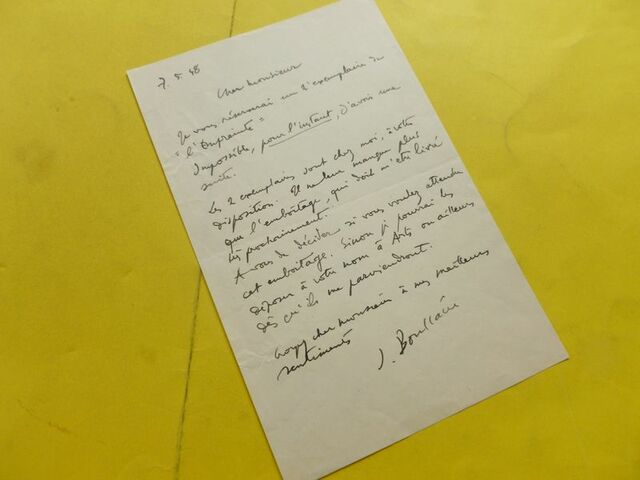 7. 5. 48
Cher monsieur
Je vous réserverai un 2e exemplaire de
"l'Empreinte"
Impossible, pour l'instant, d'avoir une
suite.
Les 2 exemplaires sont chez moi, à votre
disposition. Il ne leur manque plus
que l'emboîtage, qui doit m'être livré
très prochainement.
A vous de décider si vous voulez attendre
cet emboîtage. Sinon je pourrai les
déposer à votre nom à Arts ou ailleurs
dès qu'ils me parviendront.
Croyez cher monsieur à mes meilleurs
sentiments
J.